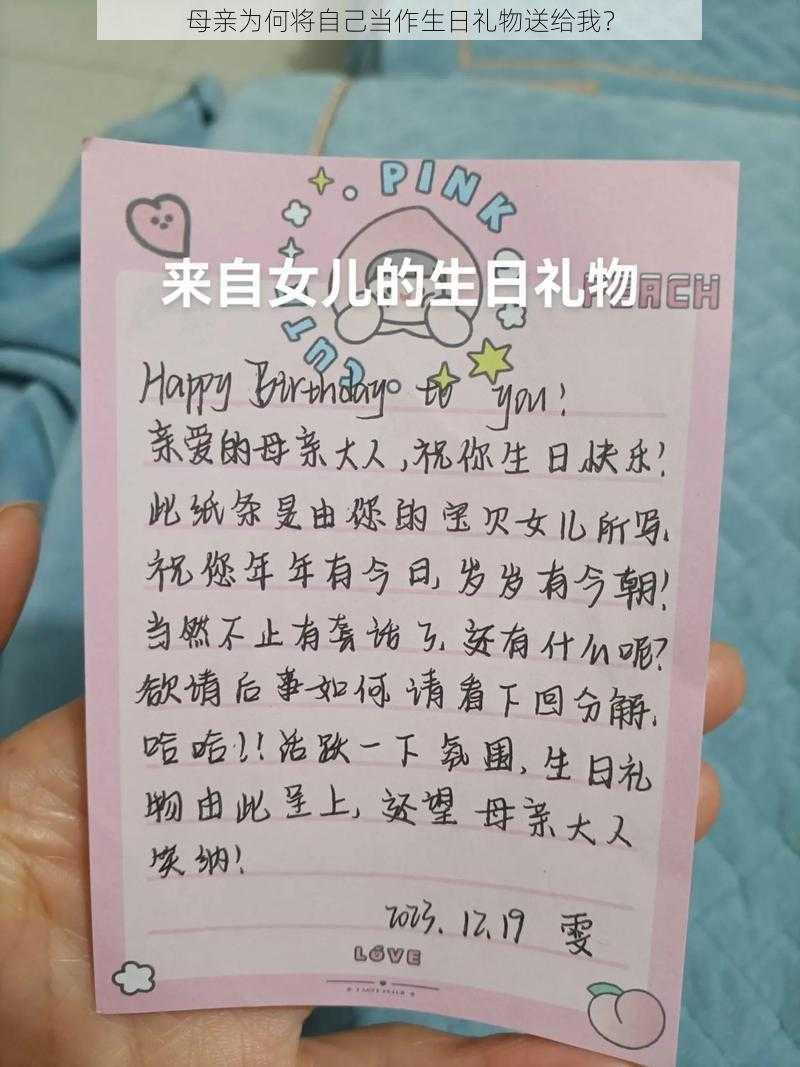 母亲为何将自己当作生日礼物送给我？
PINK
PEACH
CUTE
来自女儿的生日礼物
Happy Birthday to you!
亲爱的母亲大人,祝你生日快乐!
此纸条是由您的宝贝女儿所写,
祝您年年有今日,岁岁有今朝!
当然不止有套话了,还有什么呢?
欲请后事如何请看下回分解,
哈哈!!活跃一下氛围,生日礼
物由此呈上,还望母亲大人
笑纳!
2023.12.19 雯
LOVE